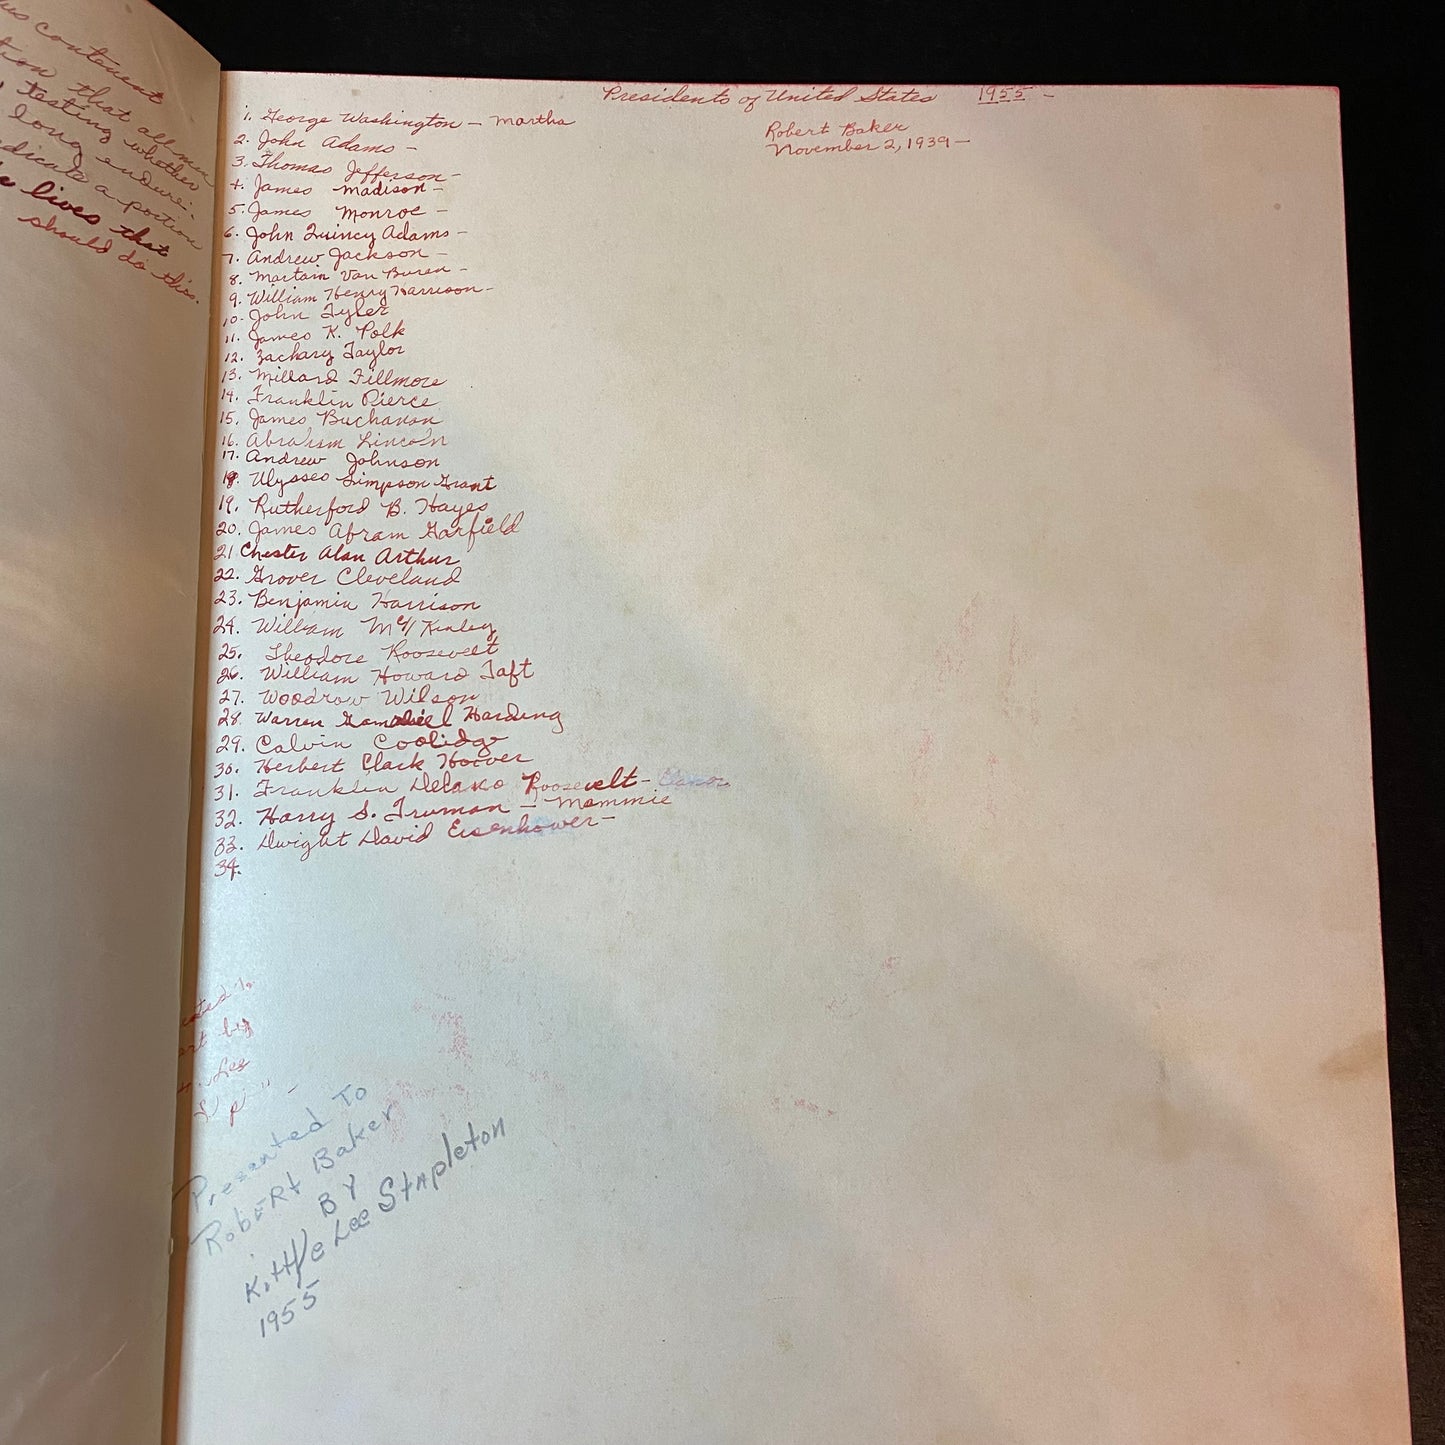 us continent
tion that all men
testing whether
long endure.
dedicate a portion
lives that
should do this.
Presidents of United States 1955 -
Robert Baker
November 2, 1939 -
1. George Washington - Martha
2. John Adams -
3. Thomas Jefferson -
4. James Madison -
5. James Monroe -
6. John Quincy Adams -
7. Andrew Jackson -
8. Martain Van Buren -
9. William Henry Harrison -
10. John Tyler
11. James K. Polk
12. Zachary Taylor
13. Millard Fillmore
14. Franklin Pierce
15. James Buchanan
16. Abraham Lincoln
17. Andrew Johnson
18. Ulysses Simpson Grant
19. Rutherford B. Hayes
20. James Abram Garfield
21 Chester Alan Arthur
22. Grover Cleveland
23. Benjamin Harrison
24. William McKinley
25. Theodore Roosevelt
26. William Howard Taft
27. Woodrow Wilson
28. Warren Gamaliel Harding
29. Calvin Coolidge
30. Herbert Clark Hoover
31. Franklin Delano Roosevelt -
32. Harry S. Truman - Mammie
33. Dwight David Eisenhower -
34.
by
Lee
Presented To
Robert Baker
BY
Kittie Lee Stapleton
1955